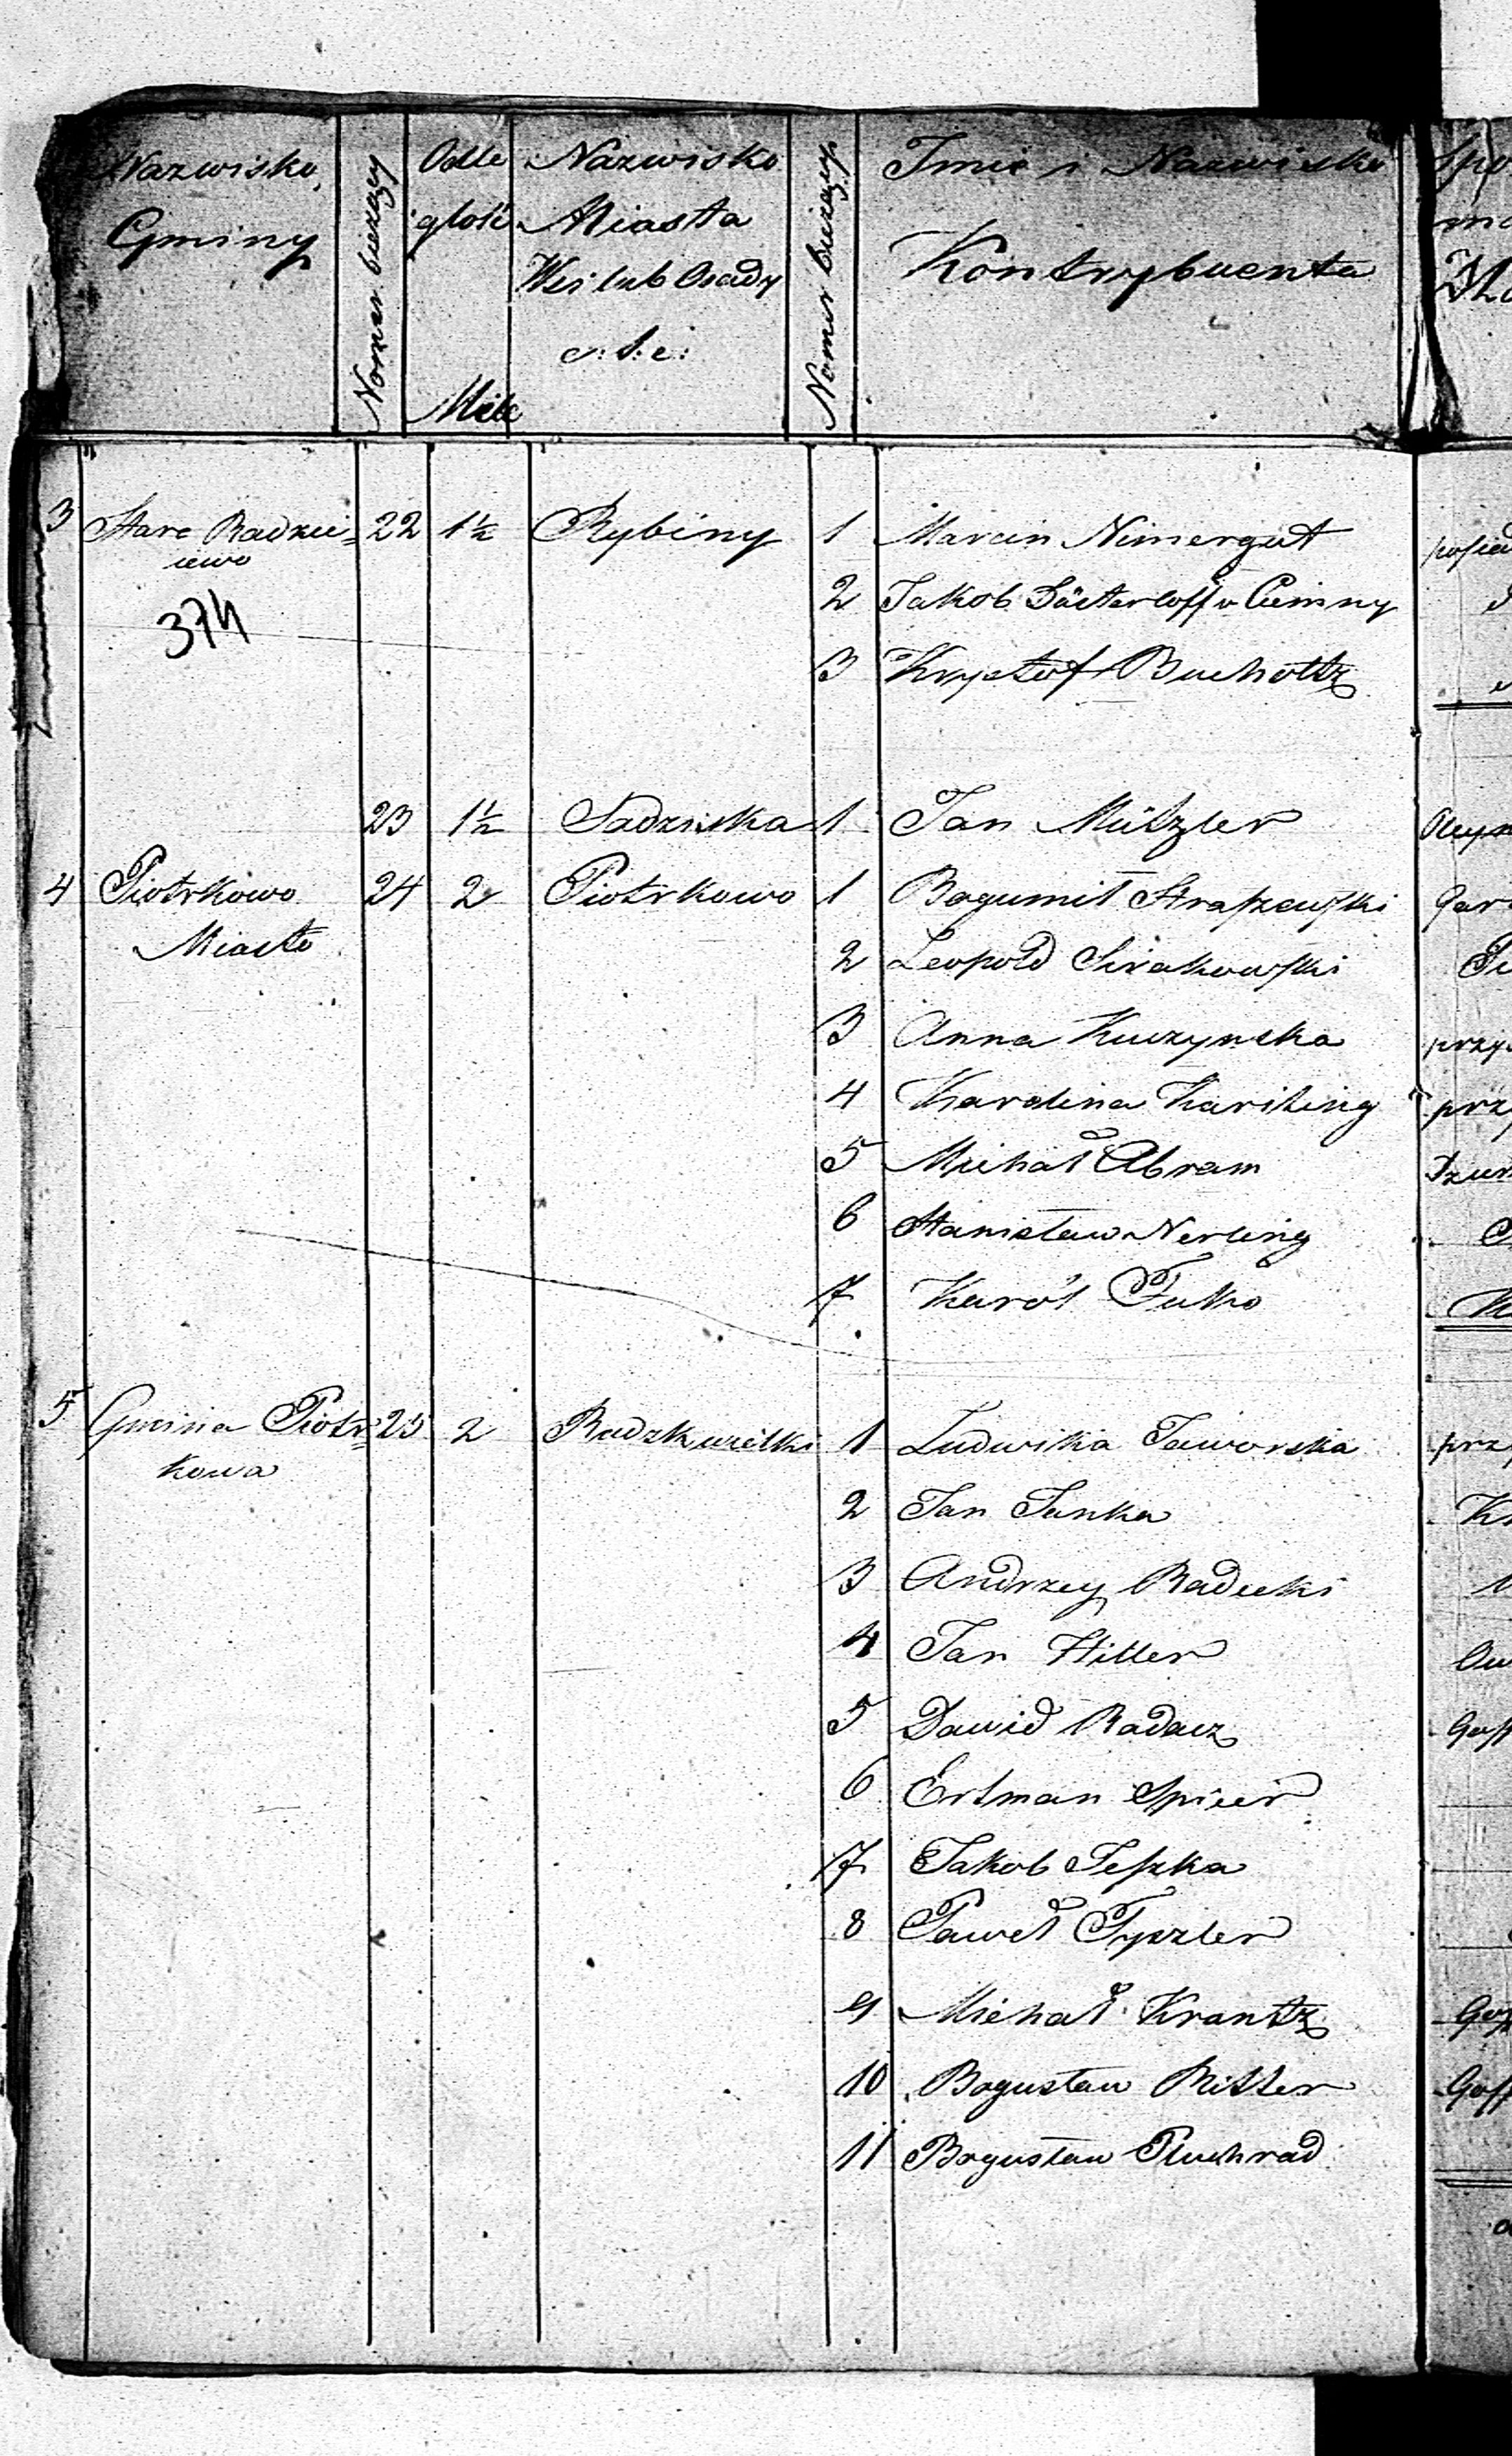 Nazwisko
Gminy
Nomer bieżący
Odle
głość
Mile
Nazwisko
Miasta
Wsi lub Osady
e. t. c.
Nomer bieżący
Imie i Nazwisko
Kontrybuenta
3 Stare Radzie= 22 1½ Rybiny 1 Marcin Nimergut
iewo
374
2 Jakob Däcterloff v Ciemny
3 Krysztof Bucholtz
23 1½ Sadziska 1 Jan Mützler
4 Piotrkowo 24 2 Piotrkowo 1 Bogumił Straszewski
Miasto
2 Leopold Sirakowski
3 Anna Kuczynska
4 Karolina Kariting
5 Michał Abram
6 Stanisław Nerling
7 Karól Fulko
5 Gmina Piotr= 25 2 1 Ludwika Jaworska
kowa
2 Jan Janka
3 Andrzey Radecki
4 Jan Hitler
5 Dawid Radacz
6 Ertman Spicer
7 Jakob Teszka
8 Paweł Tyzler
9 Michał Krantz
10 Bogusław Ritter
11 Bogusław Pluchrad